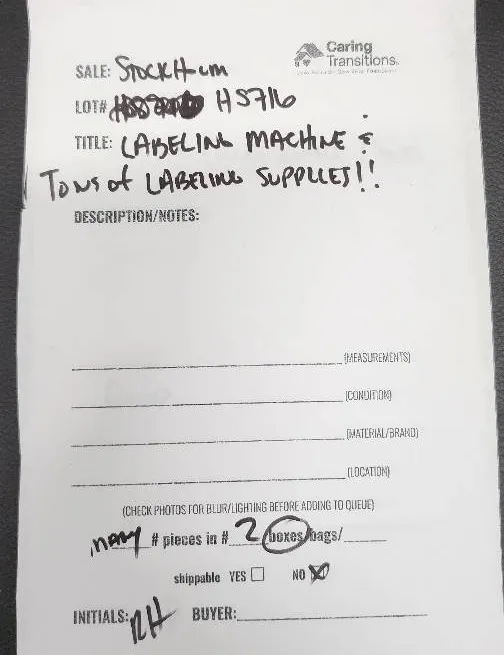 Caring
Transitions
SALE: STOCKHum
LOT# HS716
TITLE: LABELING MACHINE &
TONS of LABELING SUPPLIES!!
DESCRIPTION/NOTES:
(MEASUREMENTS)
(CONDITION)
(MATERIAL/BRAND)
(LOCATION)
(CHECK PHOTOS FOR BLUR/LIGHTING BEFORE ADDING TO QUEUE)
many # pieces in # 2 boxes/bags/
shippable YES NO
INITIALS: RH BUYER: